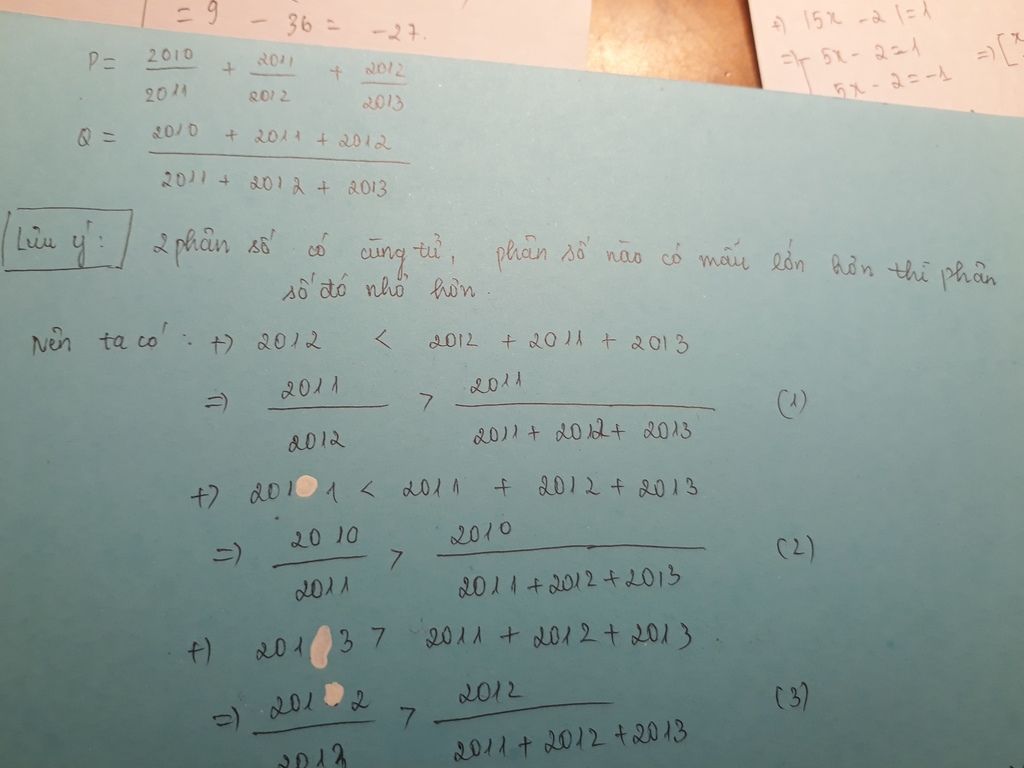 = 9 - 36 = -27.
+) |5x - 2| = 1
=> [ 5x - 2 = 1 => [ x
5x - 2 = -1
P = 2010/2011 + 2011/2012 + 2012/2013
Q = (2010 + 2011 + 2012)/(2011 + 2012 + 2013)
Lưu ý: 2 phân số có cùng tử, phân số nào có mẫu lớn hơn thì phân
số đó nhỏ hơn.
Nên ta có: +) 2012 < 2012 + 2011 + 2013
=) 2011/2012 > 2011/(2011 + 2012 + 2013) (1)
+) 2011 < 2011 + 2012 + 2013
=) 2010/2011 > 2010/(2011 + 2012 + 2013) (2)
+) 2013 > 2011 + 2012 + 2013.
=) 2012/2013 > 2012/(2011 + 2012 + 2013) (3)